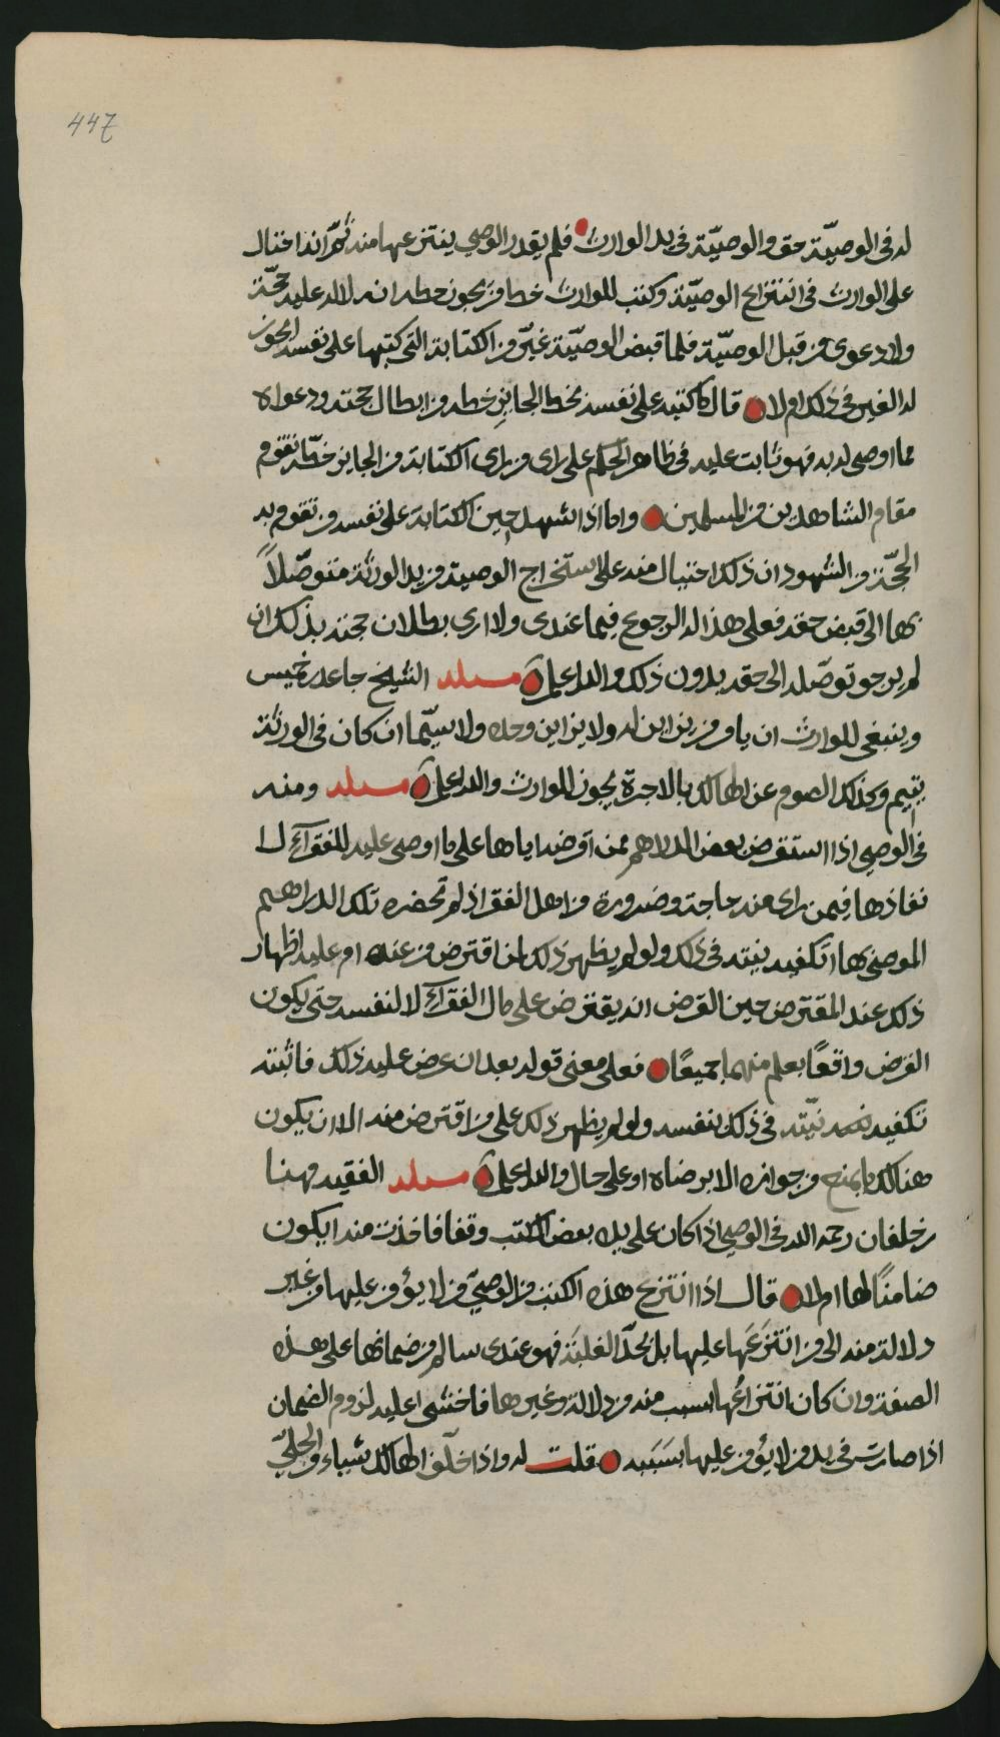 447
له في الوصيّة حق والوصيّة في يد الوارث فلم يقدر الوصي ينتزعها منه ثمّ انه احتال
على الوارث في انتزاع الوصيّة وكتب للوارث خط من يجوز خطه انه لا له عليه حجّة
ولا دعوى من قبل الوصيّة فلما قبض الوصيّة غيّر من الكتابة التي كتبها على نفسه ايجوز
له الغير في ذلك ام لا قال ما كتبه على نفسه بخط الجايز خطه من ابطال حجته ودعواه
مما اوصى له به فهو ثابت عليه في ظاهر الحكم على راي من راى الكتابة من الجايز خطّه تقوم
مقام الشاهدين من المسلمين واما اذا اشهد حين الكتابة على نفسه من تقوم به
الحجّة من الشهود ان ذلك احتيال منه على استخراج الوصية من يد الورثة متوصّلاً
بها الى قبض حقه فعلى هذا له الرجوع فيما عندي ولا ارى بطلان حجته بذلك ان
لم يرجو توصّله الى حقه بدون ذلك والله اعلم مسئلة الشيخ جاعد بن خميس
وينبغي للوارث ان يامر من يزاين له ولا يزاين وحده ولا سيّما ان كان في الورثة
يتيم وكذلك الصوم عن الهالك بالاجرة يجوز للوارث والله اعلم مسئلة ومنه
في الوصي اذا استقرض بعض الدراهم ممن اقرضه اياها على ما اوصى عليه للفقرآء لـ
نفاذها فيمن راى منه حاجة وضرورة من اهل الفقر اذ لم تحضره تلك الدراهم
الموصى بها اتكفيه نيته في ذلك ولو لم يظهر ذلك لمن اقترض من عنده ام عليه اظهار
ذلك عند المقترض حين القرض انه يقترض على مال الفقرآء لا لنفسه حتى يكون
القرض واقعًا بعلم منهما جميعًا فعلى معنى قوله بعد ان عرض عليه ذلك فاثبته
تكفيه نيّته في ذلك بنفسه ولو لم يظهر ذلك على من اقترض منه الا ان يكون
هنالك ما يمنع من جوازه الا برضاه او على حال والله اعلم مسئلة الفقيه مهنا
بن خلفان رحمه الله في الوصي اذا كان على يده بعض الكتب وقفا فاخذت منه ايكون
ضامنًا لها ام لا قال اذا انتزع هذه الكتب من الوصيّ من لا يؤمن عليها من غير
دلالة منه الى من انتزعها عليها بل بحدّ الغلبة فهو عندي سالم من ضمانها على هذه
الصفة وان كان انتزاعها بسبب منه من دلالة وغيرها فاخشى عليه لزوم الضمان
اذا صارت في يد من لا يؤمن عليها بسببه قلت له واذا خلّف الهالك شياء من الحليّ